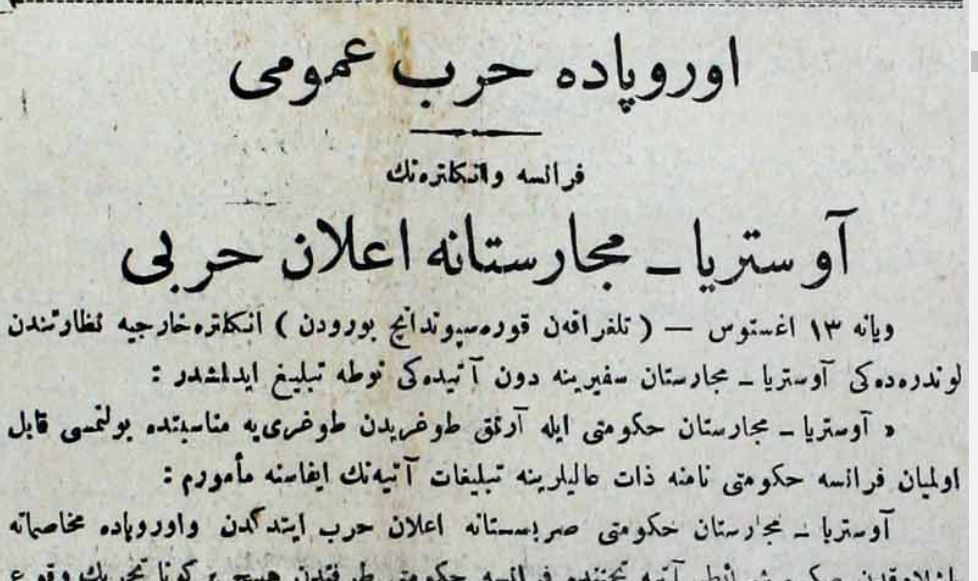 اوروپاده حرب عمومی
فرانسه وانكلتره‌نك
آوستریا ـ مجارستانه اعلان حربی
ویانه ١٣ اغستوس — ( تلغرافن قوره‌سپوندانج بورودن ) انكلتره خارجیه نظارتندن
لوندره‌ده‌كی آوستریا ـ مجارستان سفیرینه دون آتیده‌كی نوطه تبلیغ ایدلمشدر :
« آوستریا ـ مجارستان حكومتی ایله آرتق طوغریدن طوغری‌یه مناسبتده بولنمسی قابل
اولمیان فرانسه حكومتی نامنه ذات عالیلرینه تبلیغات آتیه‌نك ایفاسنه مأمورم :
آوستریا ـ مجارستان حكومتی صربستانه اعلان حرب ایتدكدن واوروپاده مخاصماته
شرائط آتیه تحتنده فرانسه حكومتی طرفندن هیچ بر كونا تحریك وقوع